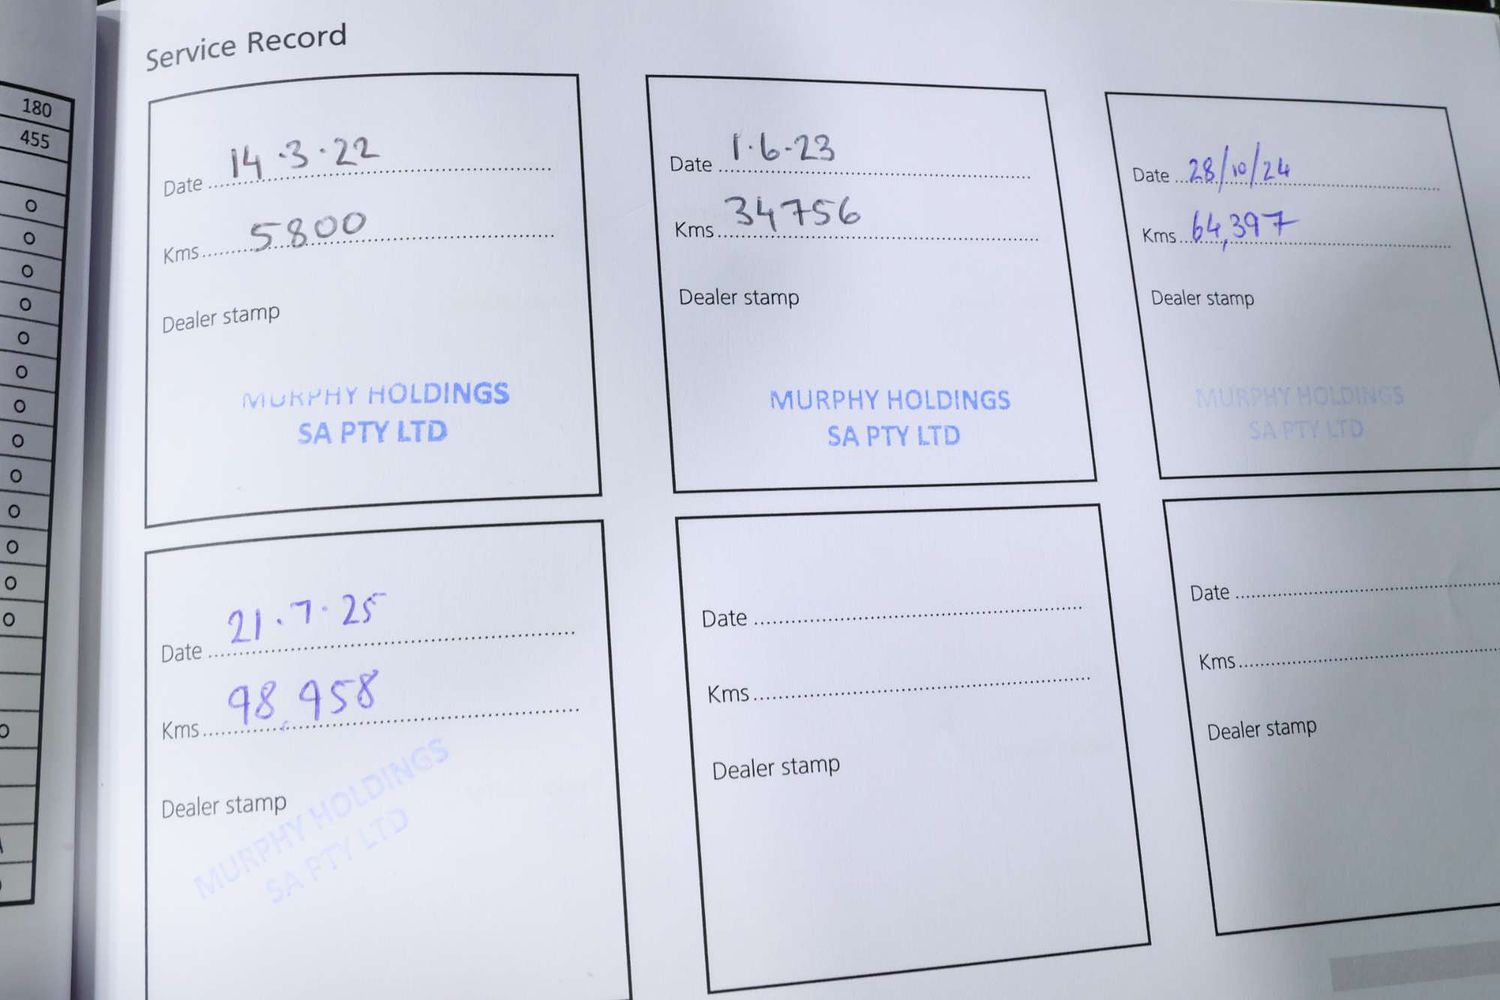 180
455
O
O
O
O
O
O
O
O
O
O
O
O
O
Service Record
Date 14.3.22
Kms 5800
Dealer stamp
MURPHY HOLDINGS
SA PTY LTD
Date 1.6.23
Kms 34756
Dealer stamp
MURPHY HOLDINGS
SA PTY LTD
Date 28/10/24
Kms 64,397
Dealer stamp
MURPHY HOLDINGS
SA PTY LTD
Date 21.7.25
Kms 98,958
Dealer stamp
MURPHY HOLDINGS
SA PTY LTD
Date
Kms
Dealer stamp
Date
Kms
Dealer stamp